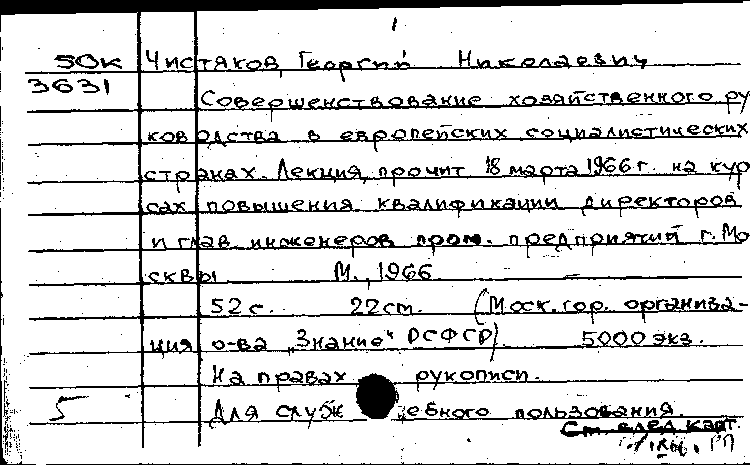 1
50к Чистяков, Георгий Николаевич
3631
Совершенствование хозяйственного ру
ководства в европейских социалистических
странах. Лекция, прочит. 18 марта 1966 г. на кур
сах повышения квалификации директоров
и глав. инженеров пром. предприятий г. Мо
сквы М., 1966
52 с. 22 см. (Моск. гор. организа-
ция о-ва "Знание" РСФСР). 5000 экз.
На правах рукописи.
5 Для служ ебного пользования.
См. след. карт.